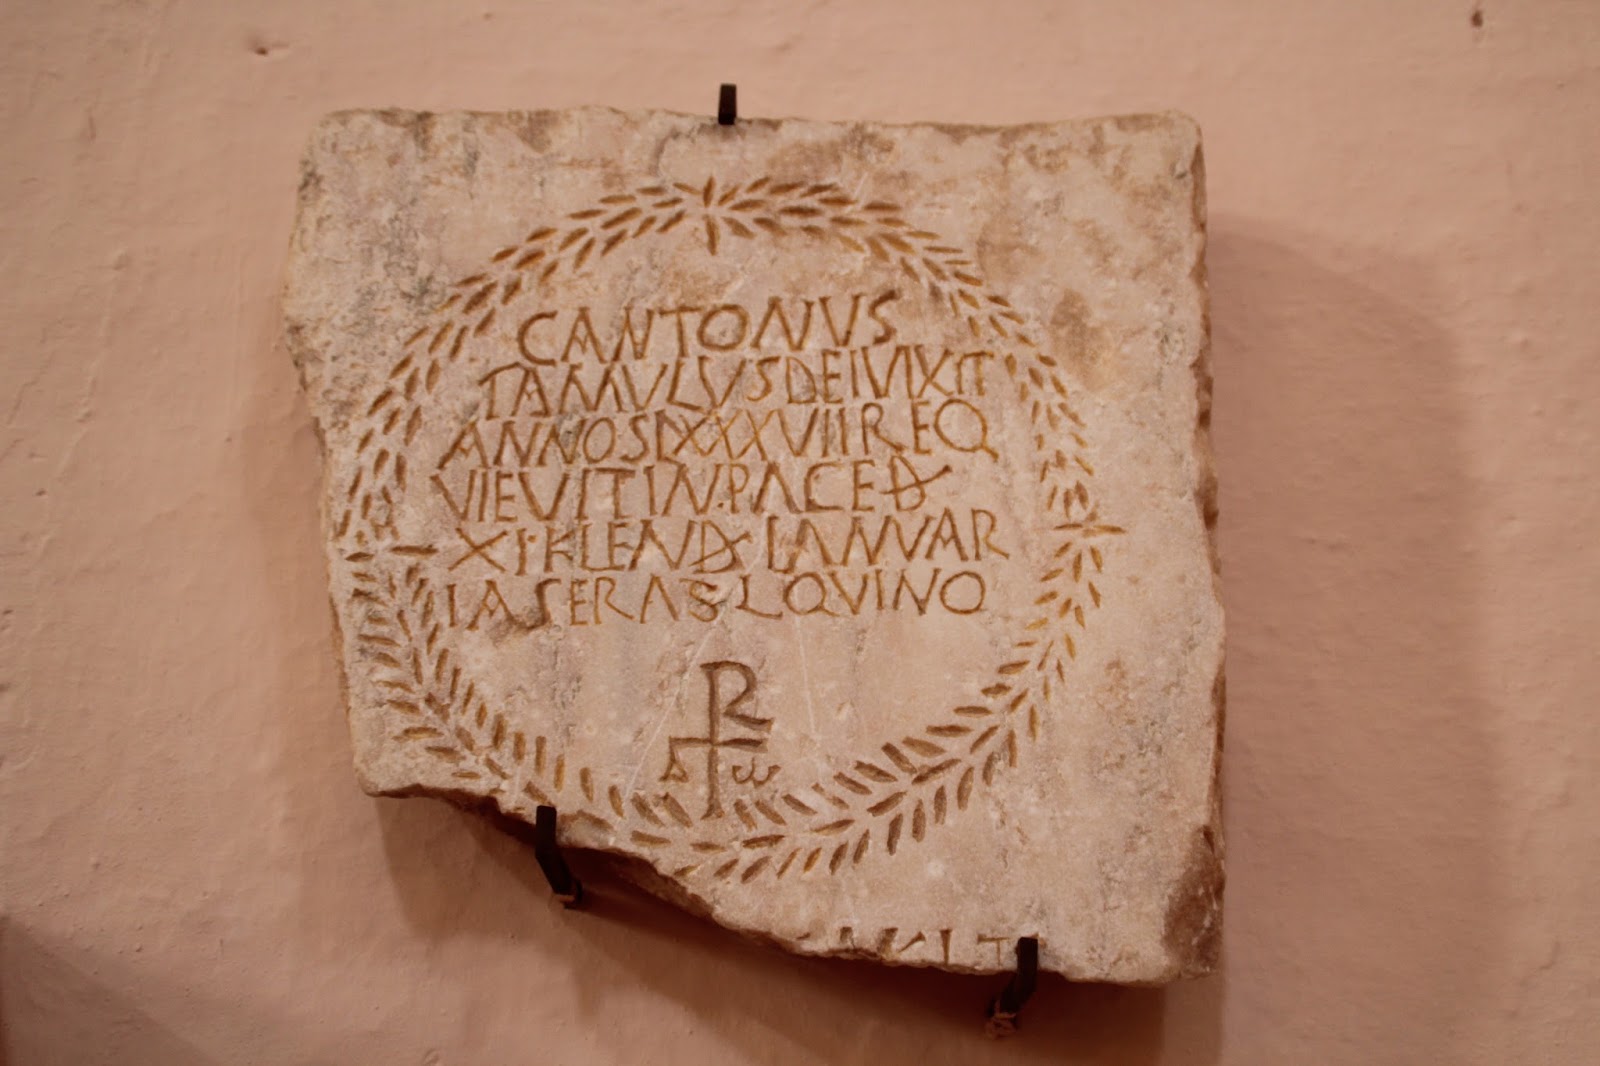 CANTONVS
TAMVLVSDEIVIXIT
ANNOSLXXXVIIREQ
VIEVITIN·PACED
XI·KLENDIANVAR
IASERASLQVINO